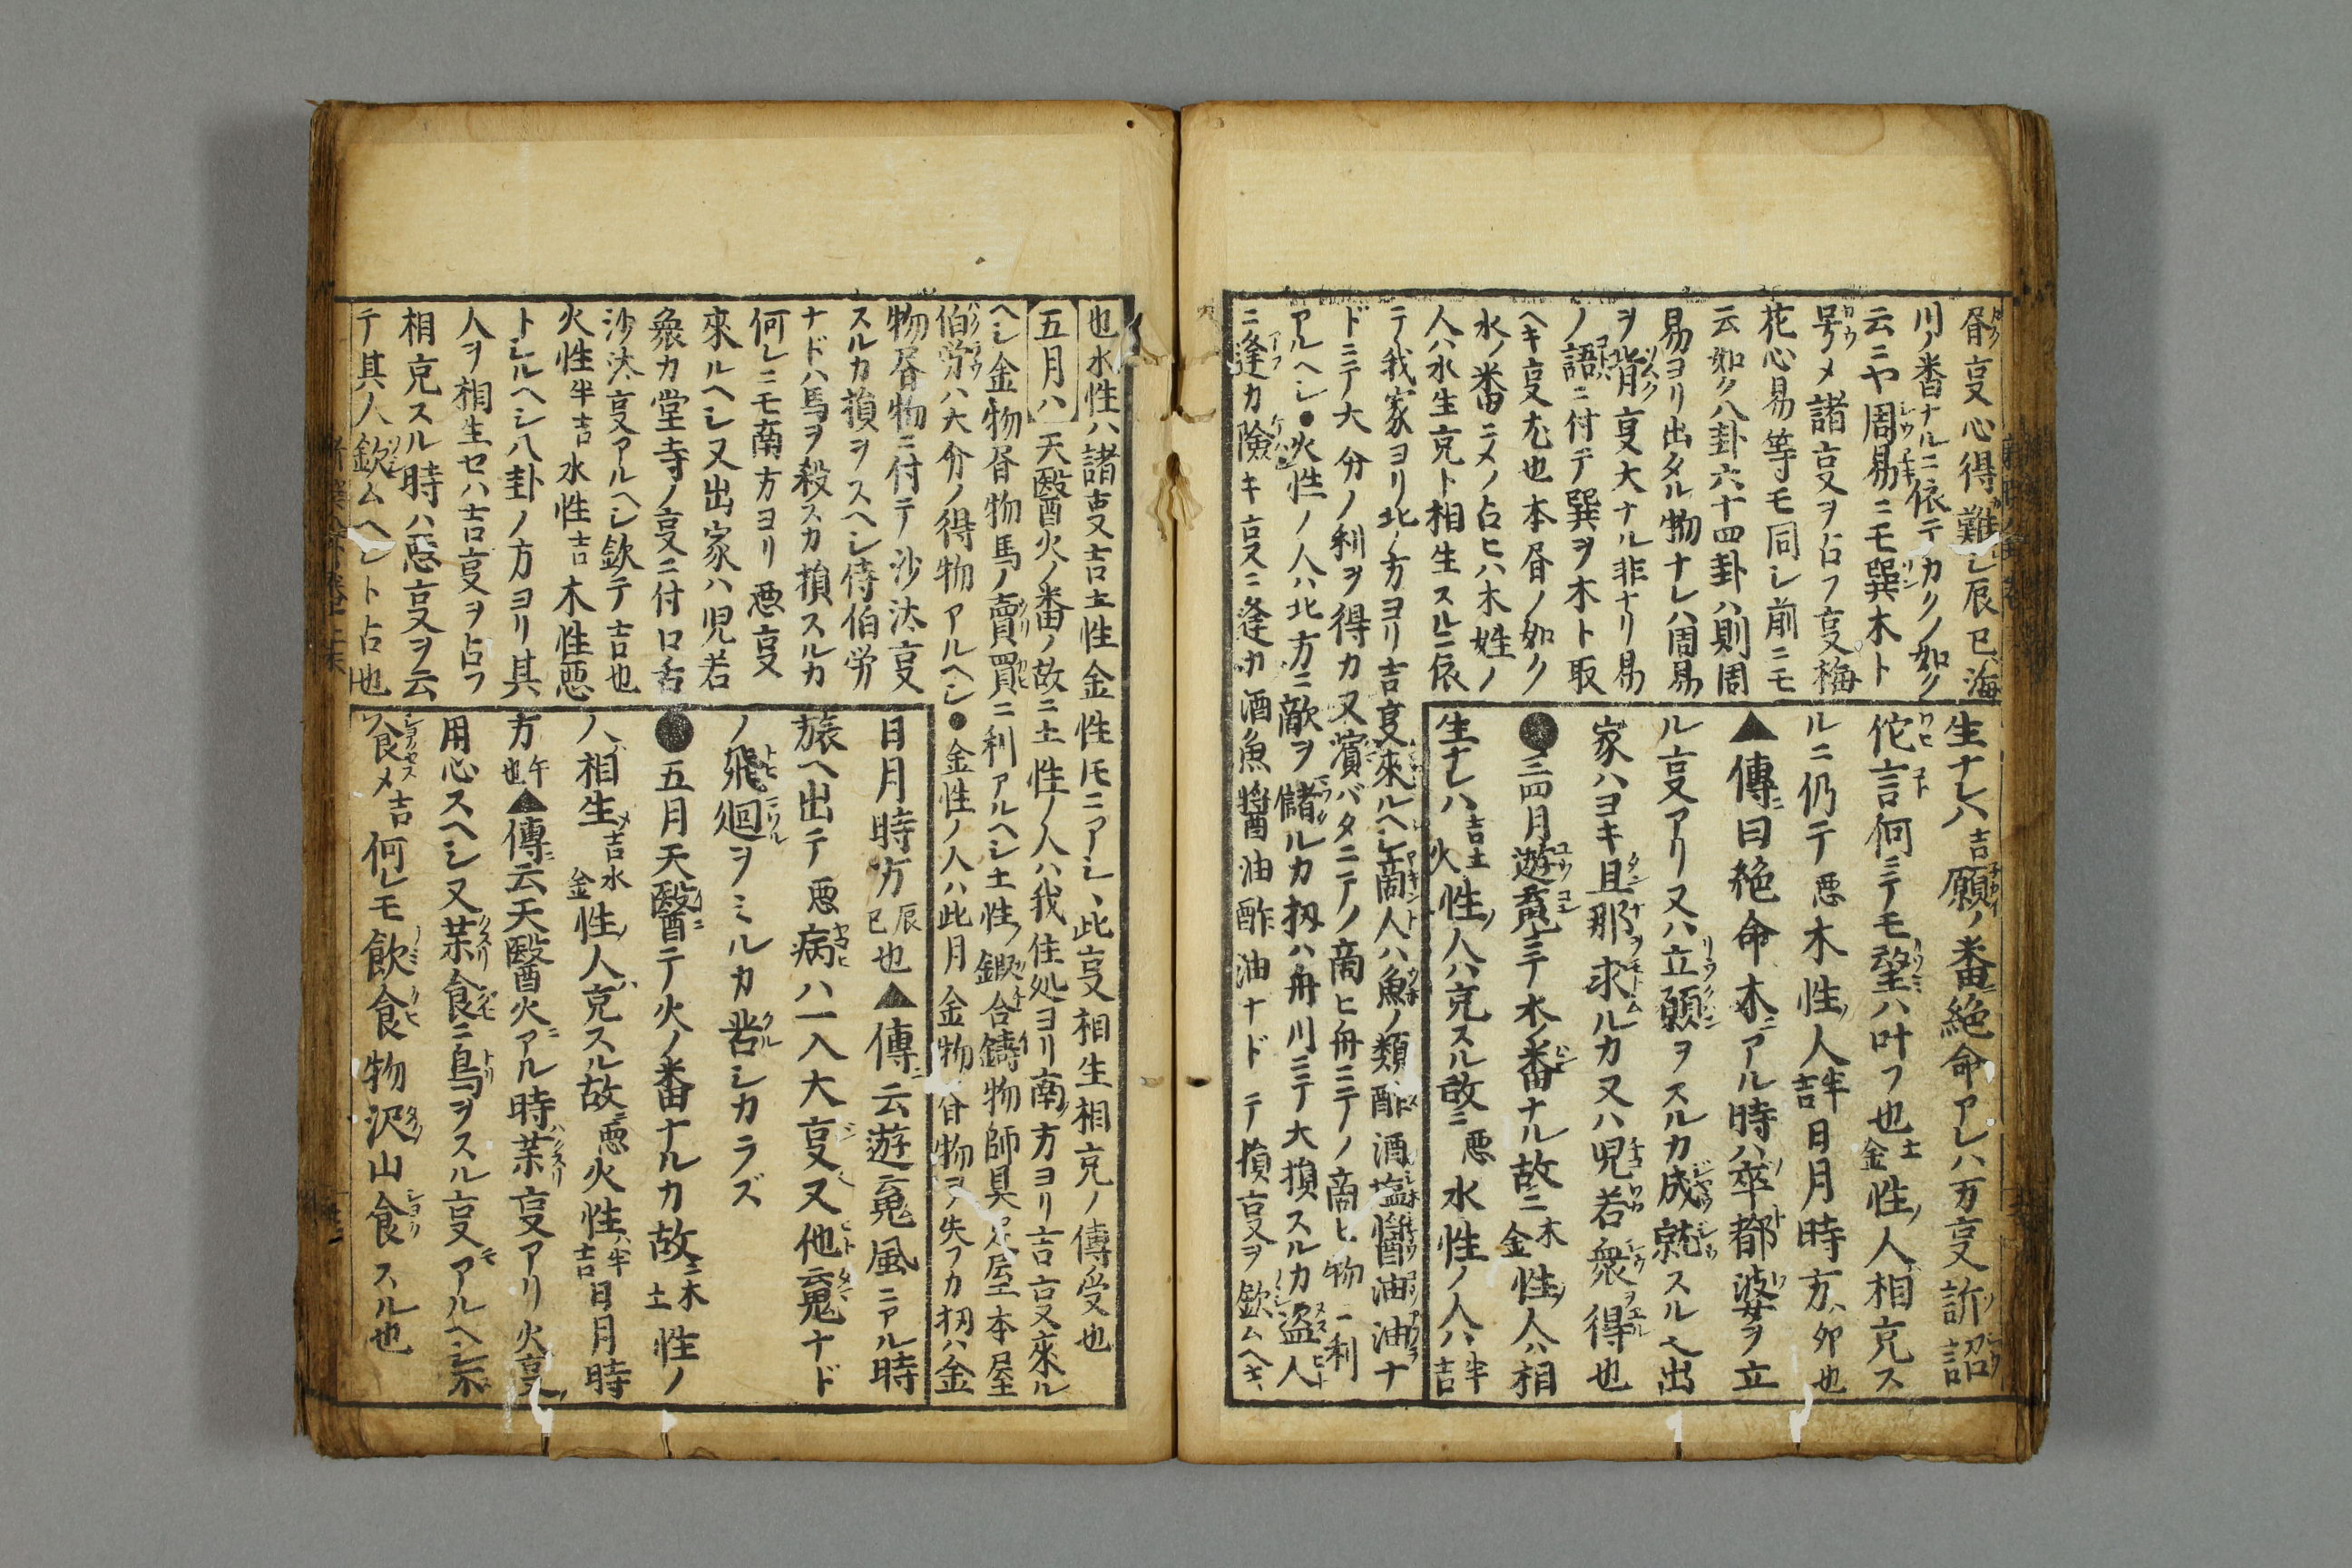 叓心得難シ辰巳海
川ノ番ナルニ依テカクノ如ク
云ニヤ周易ニモ巽木ト
号メ諸叓ヲ占フ叓梅
花心易等モ同シ前ニモ
云如ク八卦六十四卦ハ則周
易ヨリ出タル物ナレハ周易
ヲ背叓大ナル非ナリ易
ノ語ニ付テ巽ヲ木ト取
ヘキ叓尤也本ノ如ク
水ノ番ニメノ占ヒハ木姓ノ
人ハ水生克ト相生スルニ依
テ我家ヨリ北ノ方ヨリ吉叓來ルヘシ商人ハ魚ノ類酢酒塩醤油油ナ
ドニテ大分ノ利ヲ得カ又濱バタニテノ商ヒ舟ニテノ商ヒ物ニ利
アルヘシ●火性ノ人ハ北方ニ敵ヲ儲ルカ扨ハ舟川ニテ大損スルカ盗人
ニ逢カ険キ叓ニ逢カ酒魚醤油酢油ナドニテ損叓ヲ欽ムヘキ
生ナレハ吉願ノ番絶命アレハ万叓訴詔
佗言何ニテモ望ハ叶フ也土金性ノ人相克ス
ルニ仍テ悪木性ノ人半吉日月時方ハ卯也
▲傳曰絶命木ニアル時ハ卒都波ヲ立
ル叓アリ又ハ立願ヲスルカ成就スルヘ出
家ハヨキ旦那ヲ求ルカ又ハ児若衆ヲ得也
●三四月遊䰟ニテ水ノ番ナル故ニ木金性ノ人ハ相
生ナレハ吉土火性ノ人ハ克スル故ニ悪水性ノ人ハ半吉
也水性ハ諸叓吉土性金性ニアシ此叓相生相克ノ傳受也
五月ハ天醫火ノ番ノ故ニ土性ノ人ハ我住処ヨリ南ノ方ヨリ吉叓來ル
ヘシ金物物馬ノ賣買ニ利アルヘシ土性ノ鍛合鋳物師具足屋本屋
伯労ハ大分ノ得物アルヘシ●金性ノ人ハ此月金物物ヲ失フカ扨ハ金
物物ニ付テ沙汰叓
スルカ損ヲスヘシ侍伯労
ナドハ馬ヲ殺スカ損スルカ
何レニモ南方ヨリ悪叓
來ルヘシ又出家ハ児若
衆カ堂寺ノ叓ニ付口舌
沙汰叓アルヘシ欽テ吉也
火性半吉水性吉木性悪
トシルヘシ八卦ノ方ヨリ其
人ヲ相生セハ吉叓ヲ占フ
相克スル時ハ悪叓ヲ云
テ其人欽ムヘシト占也
日月時方辰巳也▲傳云遊䰟風ニアル時
旅ヘ出テ悪病ハ一入大叓又他䰟ナド
ノ飛廻ヲミルカ苦シカラズ
●五月天醫ニテ火ノ番ナルカ故ニ木土性ノ
人相生メ吉水金性ノ人ハ克スル故ニ悪火性ハ半吉日月時
方午也▲傳云天醫火ニアル時ハ藥叓アリ火叓ノ
用心スヘシ又藥食ニ鳥ヲスル叓モアルヘシ不
食メ吉何レモ飲食物沢山食スル也